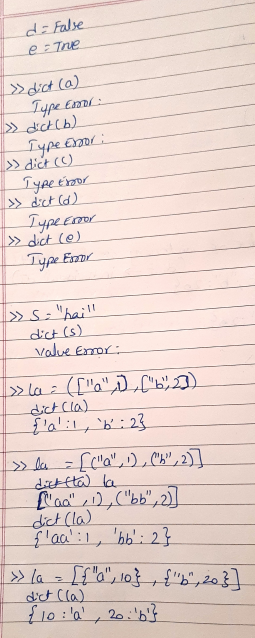 d = False
e = True
>> dict(a)
Type Error:
>> dict(b)
Type Error:
>> dict(c)
Type Error
>> dict(d)
Type Error
>> dict(e)
Type Error
>> S = "hai"
dict(s)
Value Error:
>> la = (["a",1),["b",2])
dict(la)
{'a':1, 'b':2}
>> la = [("a",1),("b",2)]
la
["aa",1),("bb",2)]
dict(la)
{'aa':1, 'bb':2}
>> la = [{"a",10},{"b",20}]
dict(la)
{10:'a', 20:'b'}